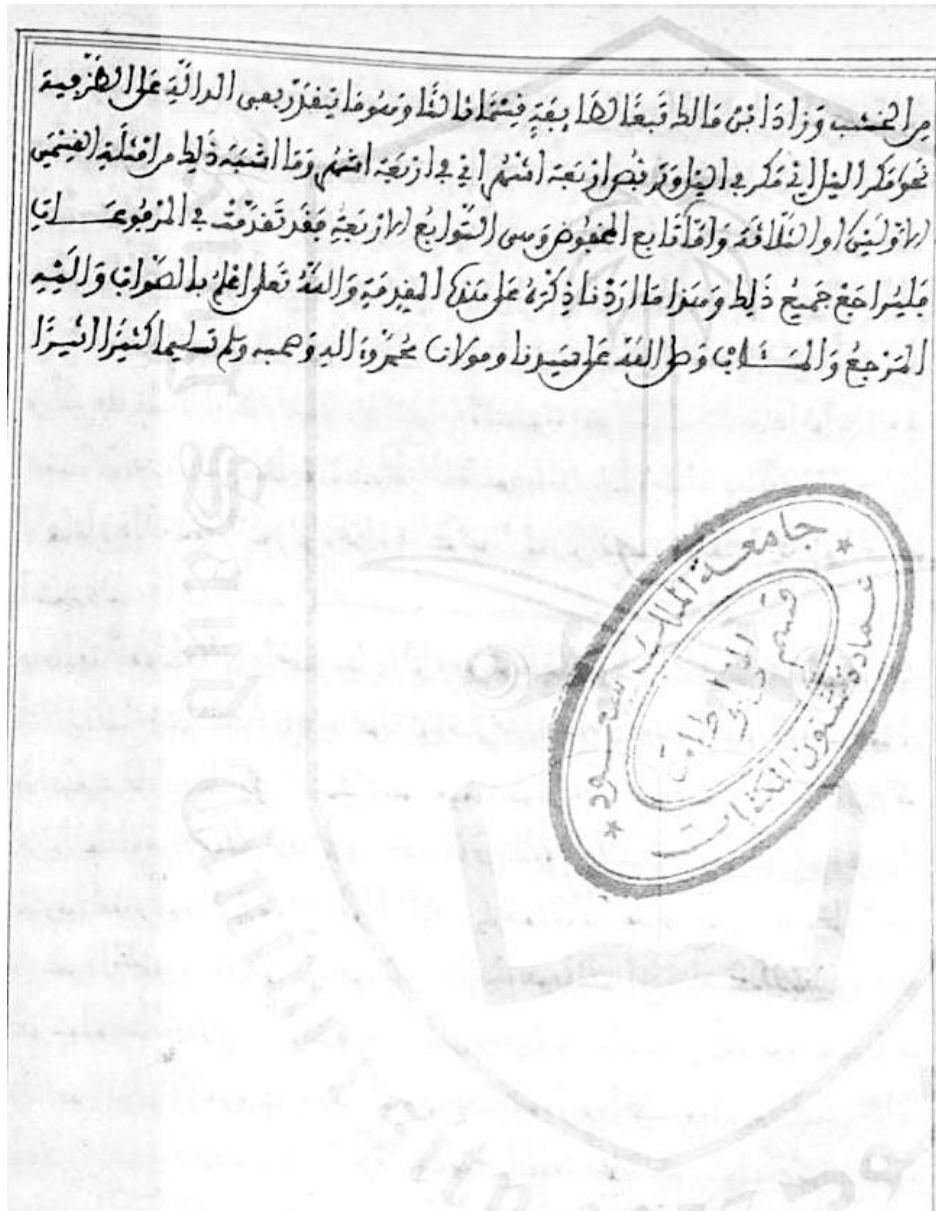 من الخشب وزاد ابن مالك تبعًا لطايفة قسمًا ثالثًا وهو ما يتقدر بفى الدالة على الظرفية
نحو مكر اليل اي مكر في اليل وتربص اربعة اشهر اي في اربعة اشهر وما اشبه ذلك من امثلة القسمين
الاولين او الثلاثة واما تابع المخفوض وهى التوابع الاربعة فقد تقدمت في المرفوعات
فليراجع جميع ذلك وهذا ما اردنا ذكره على هذه المقدمة والله تعلى اعلم بالصواب واليه
المرجع والمئاب وصلى الله على سيدنا ومولانا محمد وءاله وصحبه وسلم تسليما كثيرا اثيرا
جامعة الملك سعود
عمادة شئون المكتبات
قسم المخطوطات